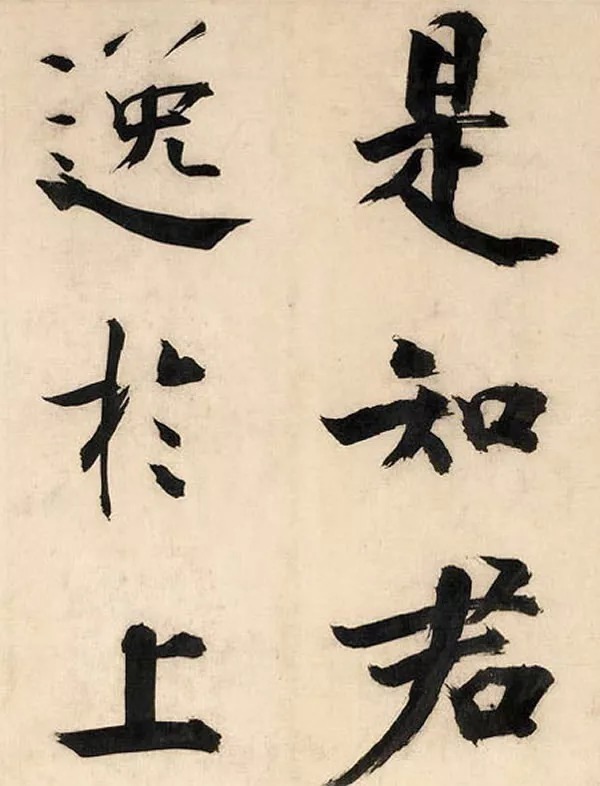 是知君
逸於上